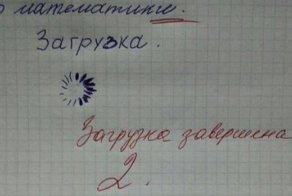 по математике.
Загрузка.
Загрузка завершена
2.